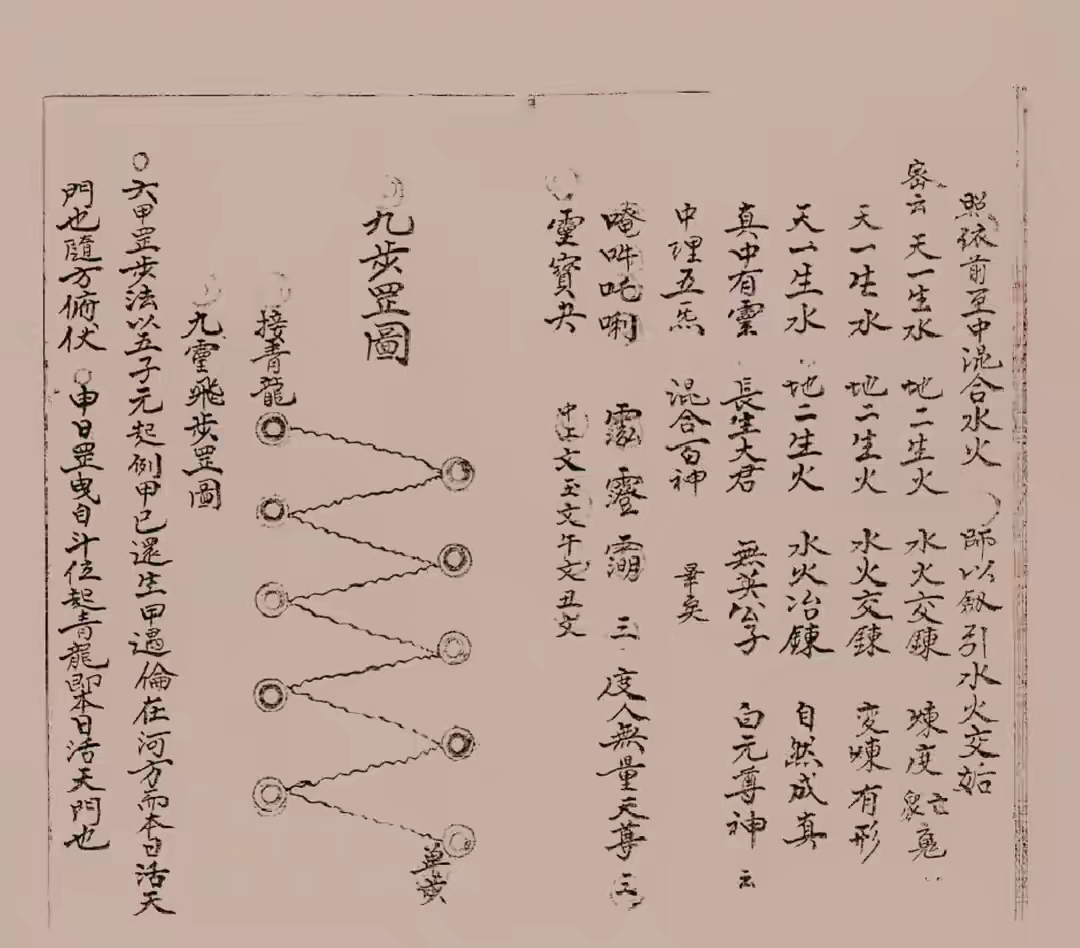 照依前互中混合水火　師以劔引水火交姤
密云　天一生水　地二生火　水火交鍊　煉度衆魂
天一生水　地二生火　水火交鍊　変煉有形
天一生水　地二生火　水火冶鍊　自然成真
真中有霊　長生大君　無英公子　白元尊神　云
中理五炁　混合百神　畢矣
唵吽吒唎　三　度人無量天尊　三
霊寳　中上文玉文午文丑文
九步罡圖
接青龍
單步
九霊飛步罡圖
六甲罡步法以五子元起例甲已還生甲遇倫在河方而本日活天
門也隨方俯伏　申日罡曳自斗位起青龍即本日活天門也